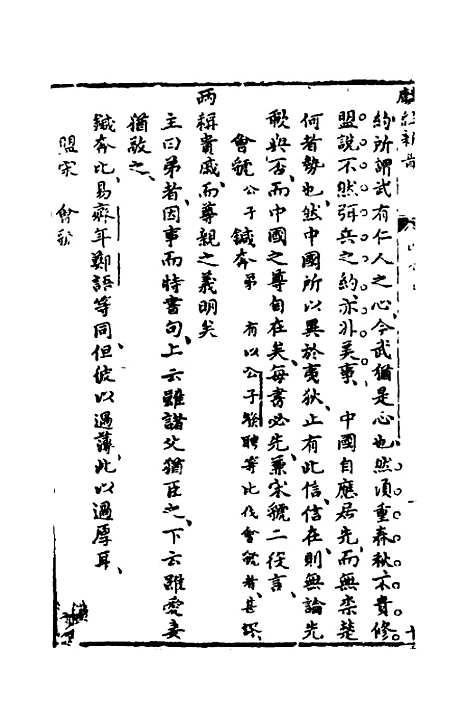 麟經新旨
約所謂武有仁人之心今武猶是心也然須重春秋不貴修
盟說不然弭兵之約亦非美事　中國自應居先而無柰楚
何者勢也然中國所以異於夷狄止有此信信在則無論先
歃與否而中國之尊自在矣每書必先兼宋虢二役言
會虢公子鍼奔弟　有以公子發聘等比伐會號者甚謬
兩稱貴戚而尊親之義明矣
主曰弟者因事而特書句上云雖諸父猶臣之下云雖愛妻
猶敵之
鍼奔比易齊年鄭語等同但彼以過薄此以過厚耳
盟宋　會虢